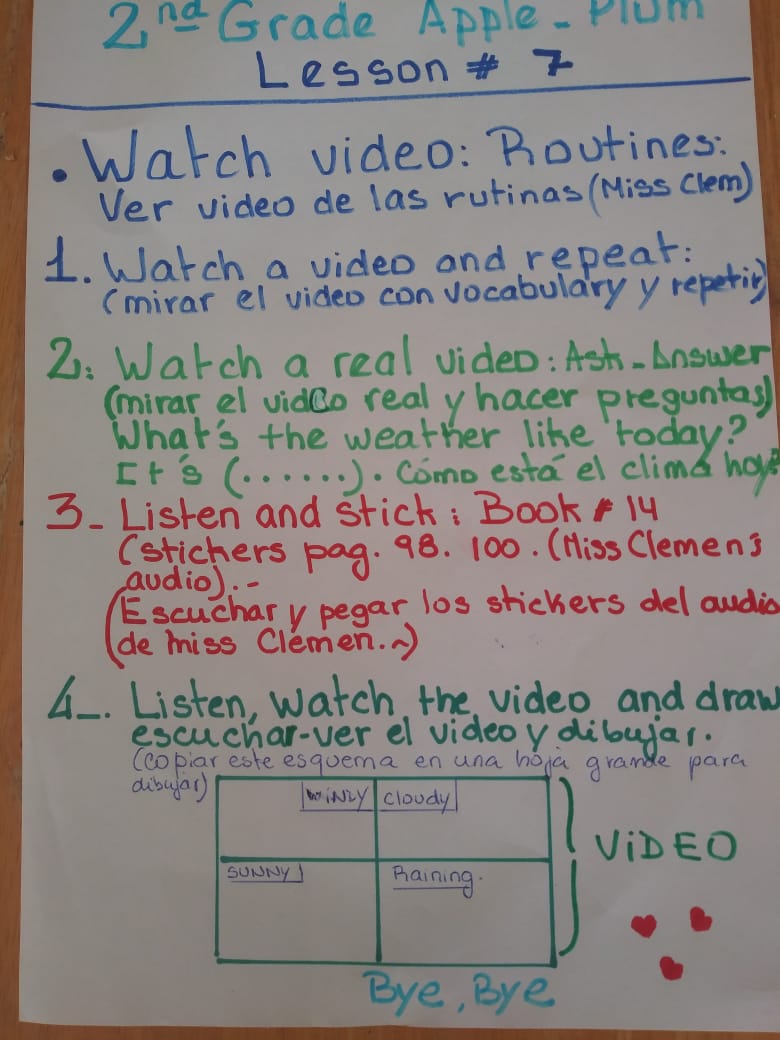 2nd Grade Apple - Plum
Lesson # 7
. Watch video: Routines:
Ver video de las rutinas (Miss Clem)
1. Watch a video and repeat:
(mirar el video con vocabulary y repetir)
2. Watch a real video: Ask - Answer
(mirar el video real y hacer preguntas)
What's the weather like today?
It's (.......). Cómo está el clima hoy?
3_ Listen and stick: Book # 14
(stickers pag. 98. 100. (Miss Clemen's
audio).-
(Escuchar y pegar los stickers del audio
de miss Clemen.~)
4_. Listen, watch the video and draw
escuchar-ver el video y dibujar.
(copiar este esquema en una hoja grande para
dibujar)
WINDY cloudy
VIDEO
SUNNY Raining.
Bye, Bye